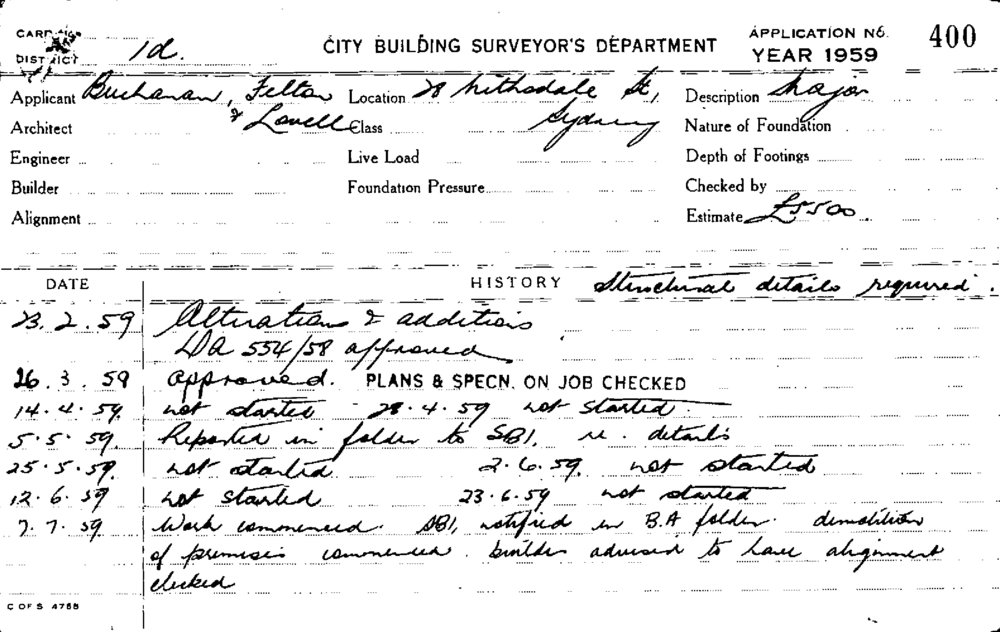 CARD
DISTRICT 1d.
CITY BUILDING SURVEYOR'S DEPARTMENT
APPLICATION No. 400
YEAR 1959
Applicant Buchanan, Felton & Lovell
Location 28 Nithsdale St, Sydney
Description Major
Architect
Class
Nature of Foundation
Engineer
Live Load
Depth of Footings
Builder
Foundation Pressure
Checked by
Alignment
Estimate £5500
DATE HISTORY Structural details required.
23.2.59 Alterations & additions
DA 554/58 approved
26.3.59 approved. PLANS & SPECN. ON JOB CHECKED
14.4.59. not started 28.4.59 not started.
5.5.59. Reported in folder to SBI, re. details
25.5.59. not started. 2.6.59. not started
12.6.59 not started 23.6.59 not started
7.7.59. Work commenced. SBI, notified in B.A folder. demolition
of premises commenced. builder advised to have alignment
checked
C OF S 4755